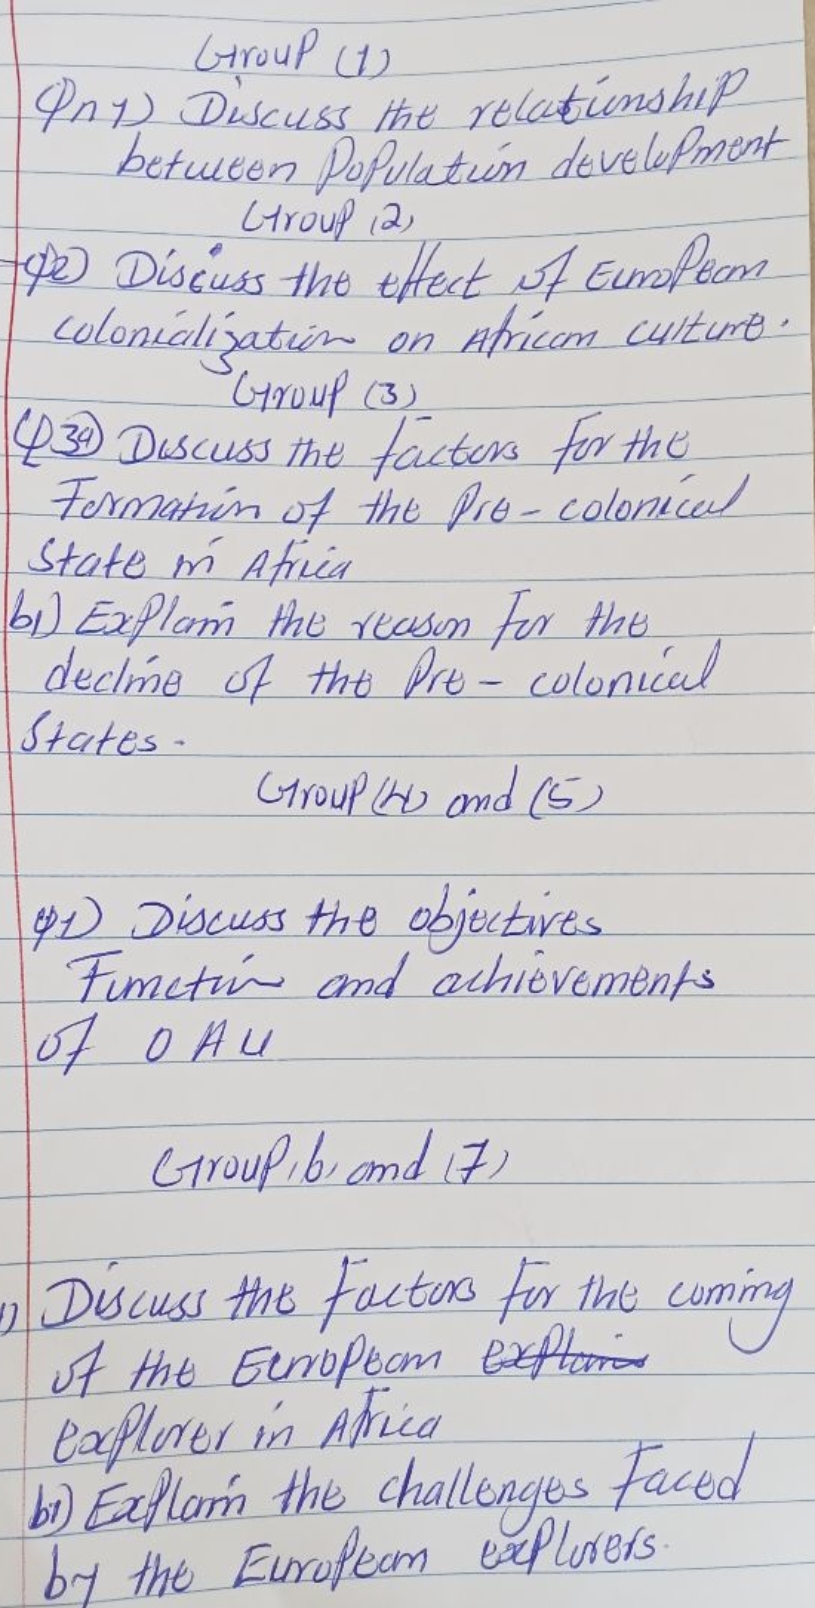 Group (1)
Qn 1) Discuss the relationship
between Population development
Group (2)
Q2) Discuss the effect of European
colonialization on African culture.
Group (3)
Q3a) Discuss the factors for the
Formation of the Pre-colonical
State in Africa
b) Explain the reason for the
decline of the Pre-colonical
States.
Group (4) and (5)
Q1) Discuss the objectives
Function and achievements
of OAU
Group (6) and (7)
1) Discuss the Factors for the coming
of the European
explorer in Africa
b) Explain the challenges Faced
by the European explorers.